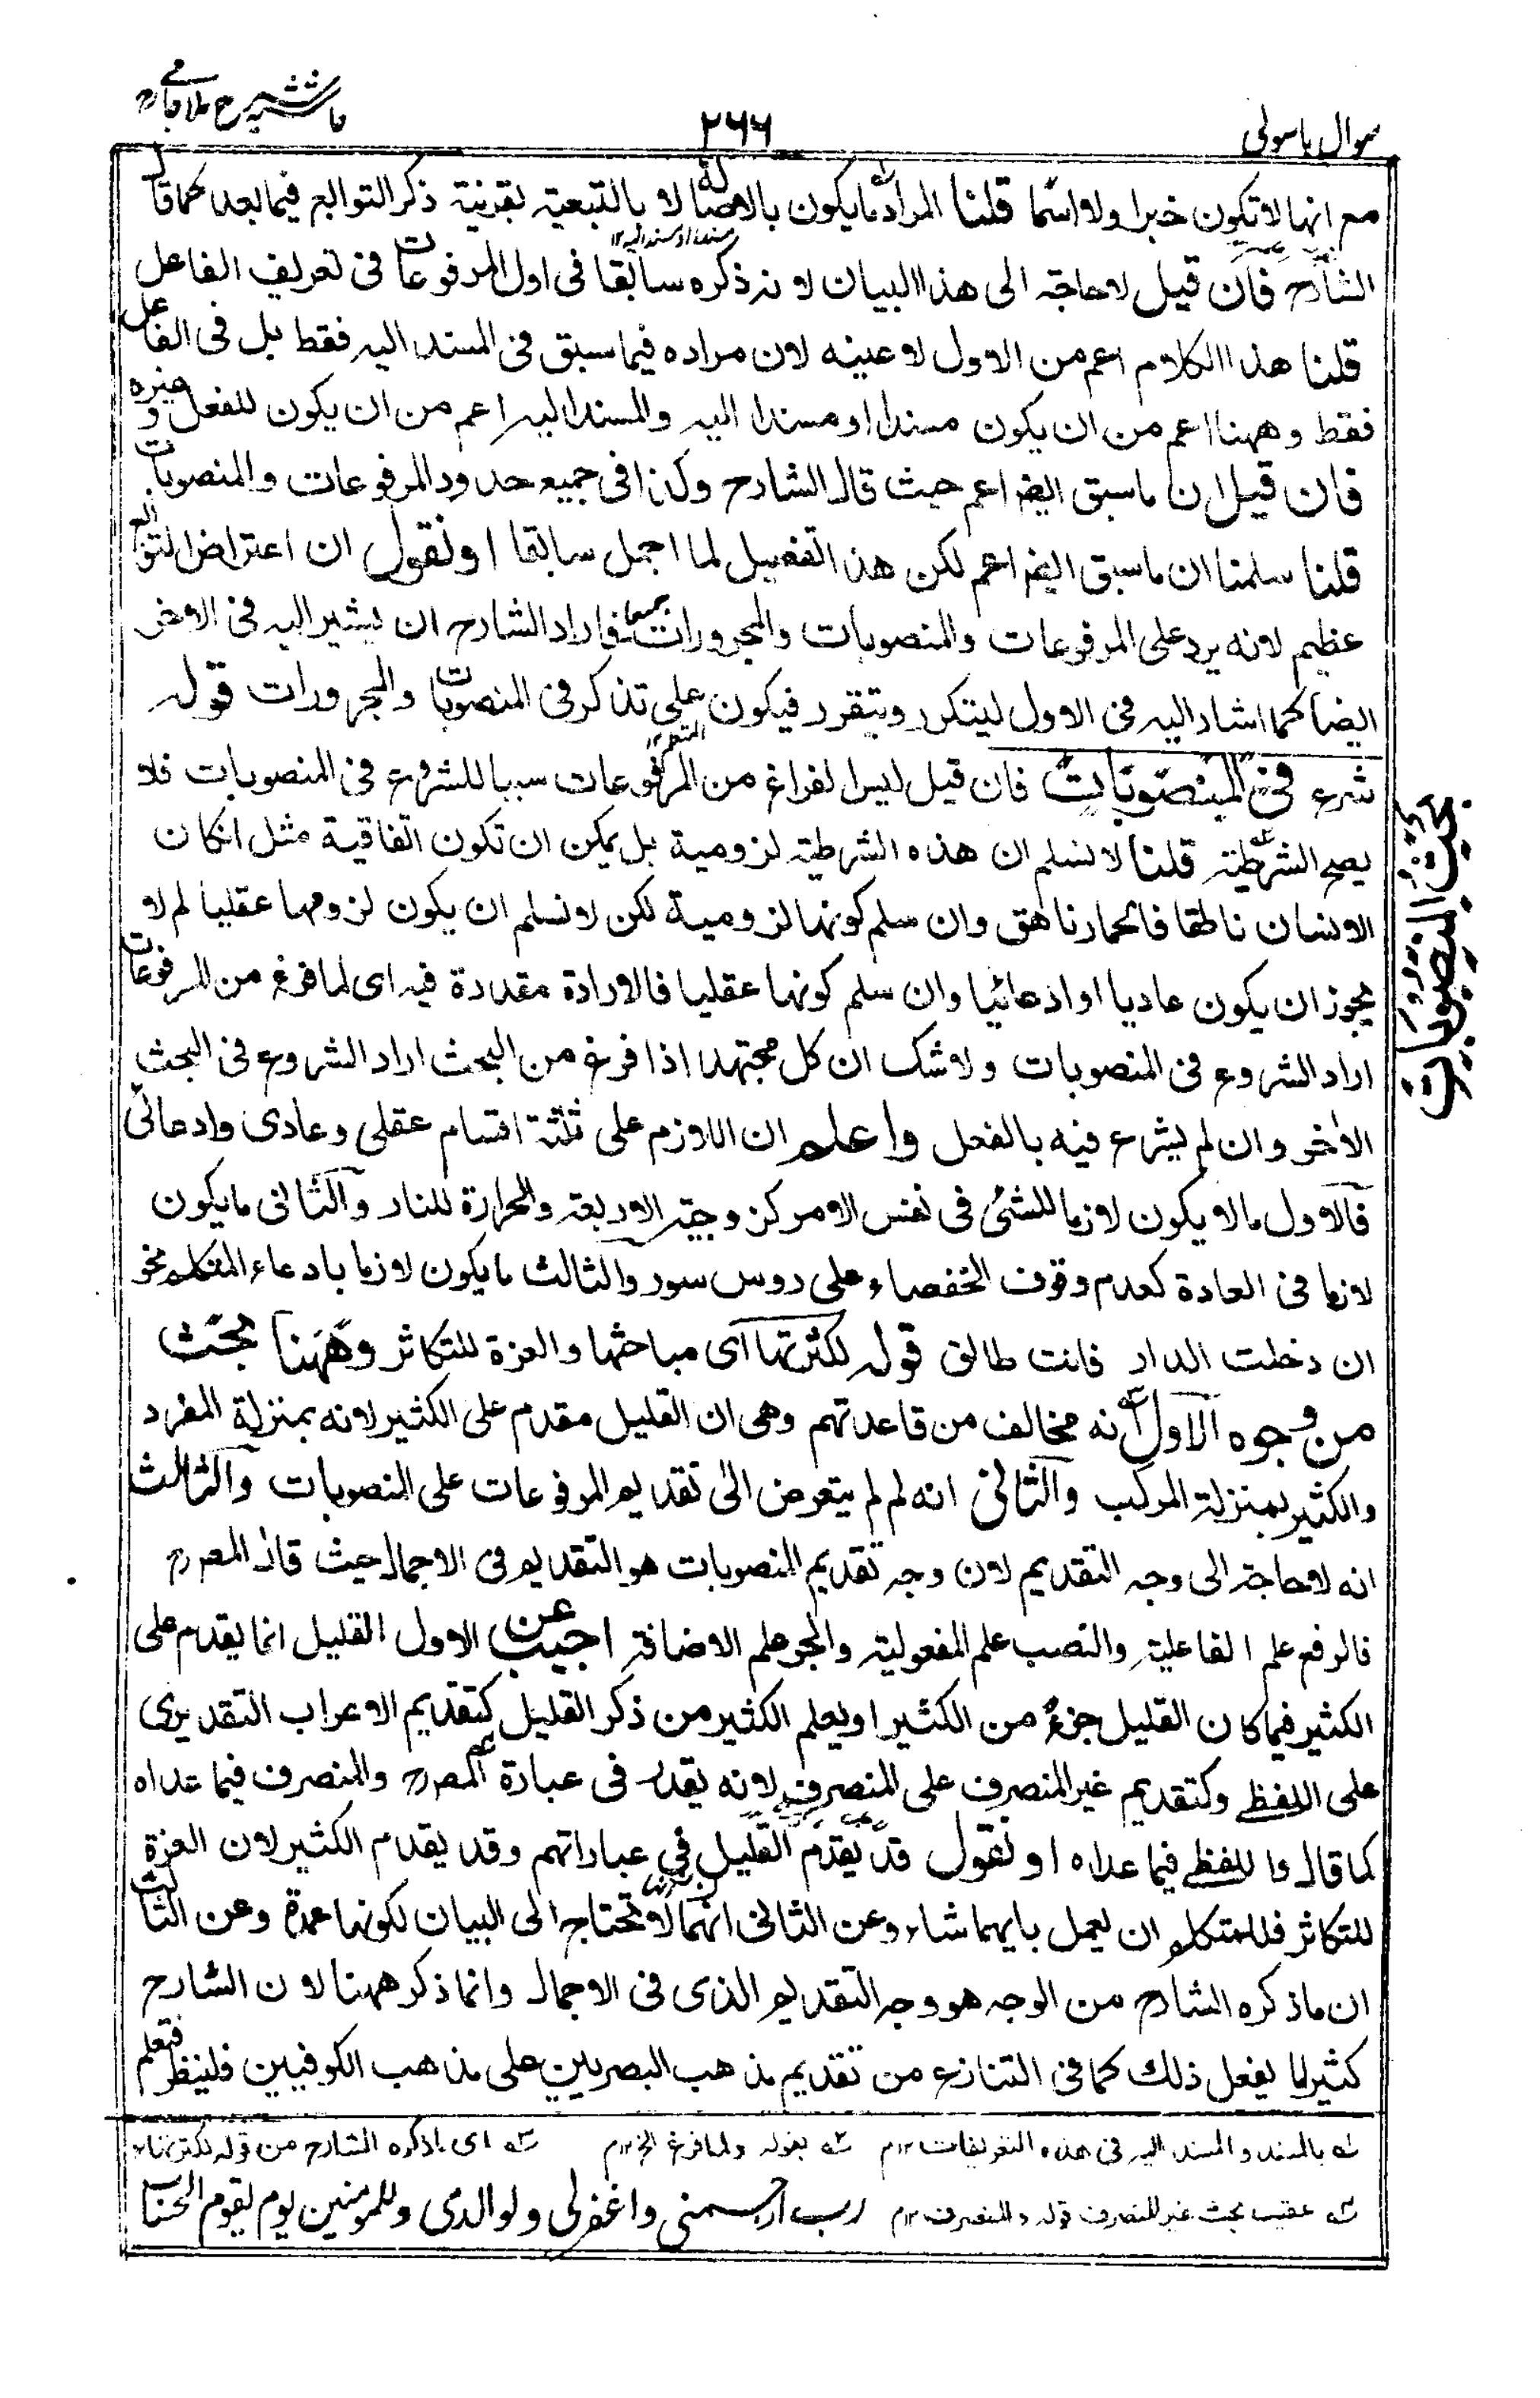 سوال باسولی
۲۶۶
حاشیہ شرح ملا جامی
مع انها لا تكون خبرا ولا اسما قلنا المراد ما يكون بالاصالة لا بالتبعية بقرينة ذكر التوابع فيما بعد كما قال
مسندا او مسندا اليه ١٢
الشارح فان قيل لا حاجة الى هذا البيان لانه ذكره سابقا فى اول المرفوعات فى تعريف الفاعل
قلنا هذا الكلام اعم من الاول لا عينه لان مراده فيما سبق فى المسند اليه فقط بل فى الفاعل
فقط وههنا اعم من ان يكون مسندا او مسندا اليه والمسند اليه اعم من ان يكون للفعل وغيره
فان قيل ان ما سبق ايضا اعم حيث قال الشارح وكذا فى جميع حدود المرفوعات والمنصوبات
قلنا سلمنا ان ما سبق ايضا اعم لكن هذا تفصيل لما اجمل سابقا او نقول ان اعتراض التوابع
عظيم لانه يرد على المرفوعات والمنصوبات والمجرورات جميعا فاراد الشارح ان يشير اليه فى الاخر
ايضا كما اشار اليه فى الاول ليتكرر ويتقرر فيكون على تذكر فى المنصوبات والمجرورات قوله
شرع فى المنصوبات فان قيل ليس الفراغ من المرفوعات سببا للشروع فى المنصوبات فلا
يصح الشرطية قلنا لا نسلم ان هذه الشرطية لزومية بل يمكن ان تكون اتفاقية مثل انكان
الانسان ناطقا فالحمار ناهق وان سلم كونها لزومية لكن لا نسلم ان يكون لزومها عقليا لم لا
يجوز ان يكون عاديا او ادعائيا وان سلم كونها عقليا فالارادة مقدرة فيه اى لما فرغ من المرفوعات
اراد الشروع فى المنصوبات ولا شك ان كل مجتهد اذا فرغ من البحث اراد الشروع فى البحث
الاخر وان لم يشرع فيه بالفعل واعلم ان اللازم على ثلثة اقسام عقلى وعادى وادعائى
فالاول ما لا يكون لازما للشئ فى نفس الامر كزوجية الاربعة والحرارة للنار والثانى ما يكون
لازما فى العادة كعدم وقوف الخفصاء على دوس سور والثالث ما يكون لازما بادعاء المتكلم نحو
ان دخلت الدار فانت طالق قوله لكثرتها اى مباحثها والعزة للتكاثر وههنا بحث
من وجوه الاول انه مخالف من قاعدتهم وهى ان القليل مقدم على الكثير لانه بمنزلة المفرد
والكثير بمنزلة المركب والثانى انه لم لم يتعرض الى تقديم المرفوعات على المنصوبات والثالث
انه لا حاجة الى وجه التقديم لان وجه تقديم المنصوبات هو التقديم فى الاجمال حيث قال المصرح
فالرفع علم الفاعلية والنصب علم المفعولية والجر علم الاضافة اجيب عن الاول القليل انما يقدم على
الكثير فيما كان القليل جزء من الكثير او يعلم الكثير من ذكر القليل كتقديم الاعراب التقديرى
على اللفظى وكتقديم غير المنصرف على المنصرف لانه يقدر فى عبارة المصرح والمنصرف فيما عداه
كما قال واللفظى فيما عداه او نقول قد يقدم القليل فى عباراتهم وقد يقدم الكثير لان العزة
للتكاثر فللمتكلم ان يعمل بايهما شاء وعن الثانى انها لا تحتاج الى البيان لكونها عمدة وعن الثالث
ان ما ذكره الشارح من الوجه هو وجه التقديم الذى فى الاجمال وانما ذكر ههنا لان الشارح
كثيرا ما يفعل ذلك كما فى التنازع من تقديم مذهب البصريين على مذهب الكوفيين فلينظر فتعلم
بحث المنصوبات
له بالمسند والمسند اليه فى هذه التعريفات ١٢م ٢ه بقوله ولما فرغ الخ ١٢م ٣ه اى ما ذكره الشارح من قوله لكثرتها ١٢
٤ه عقيب بحث غير المنصرف قوله والمنصرف ١٢م رب ارحمنى واغفر لى ولوالدى وللمومنين يوم يقوم الحساب